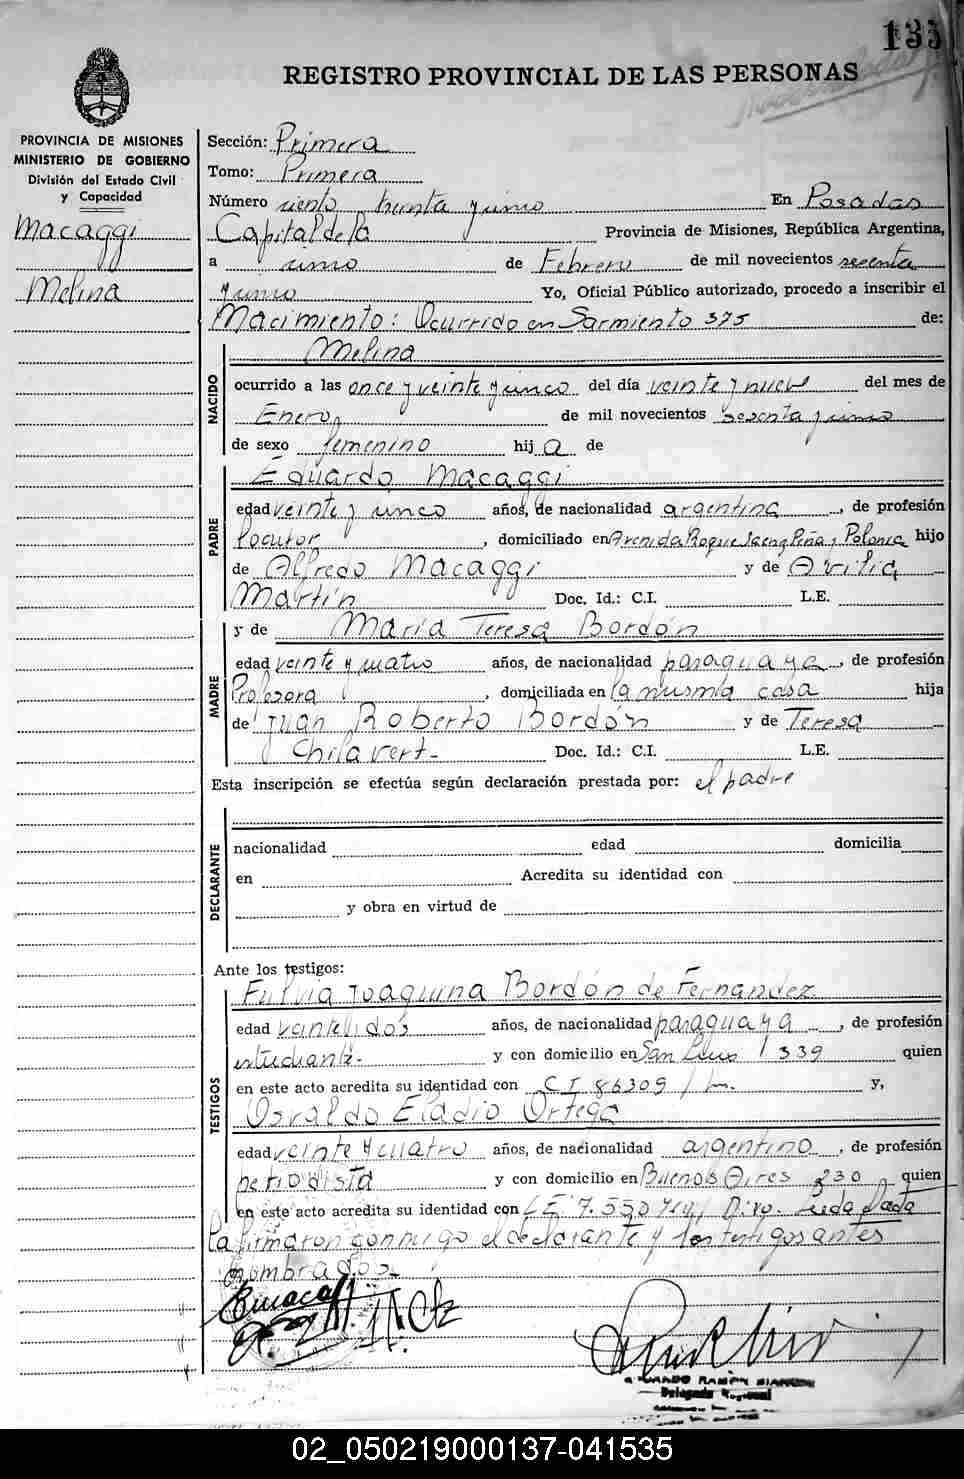 135
REGISTRO PROVINCIAL DE LAS PERSONAS
PROVINCIA DE MISIONES
MINISTERIO DE GOBIERNO
División del Estado Civil
y Capacidad
Macaggi
Melina
Sección: Primera
Tomo: Primera
Número ciento treinta y cinco En Posadas
Capital de la Provincia de Misiones, República Argentina,
a uno de Febrero de mil novecientos sesenta
y uno Yo, Oficial Público autorizado, procedo a inscribir el
Nacimiento: Ocurrido en Sarmiento 375 de:
NACIDO
Melina
ocurrido a las once y veinte y cinco del día veinte y nueve del mes de
Enero de mil novecientos sesenta y uno
de sexo femenino hij a de
PADRE
Eduardo Macaggi
edad veinte y cinco años, de nacionalidad argentina, de profesión
locutor, domiciliado en Avenida Roque Saenz Peña y Polonia hijo
de Alfredo Macaggi y de Ovilia
Martín Doc. Id.: C.I. L.E.
MADRE
y de María Teresa Bordón
edad veinte y cuatro años, de nacionalidad paraguaya, de profesión
Profesora, domiciliada en la misma casa hija
de Juan Roberto Bordón y de Teresa
Chilavert- Doc. Id.: C.I. L.E.
Esta inscripción se efectúa según declaración prestada por: el padre
DECLARANTE
nacionalidad edad domicilia
en Acredita su identidad con
y obra en virtud de
Ante los testigos:
TESTIGOS
Fulvia Joaquina Bordón de Fernandez
edad veintidós años, de nacionalidad paraguaya, de profesión
estudiante- y con domicilio en San Luis 1339 quien
en este acto acredita su identidad con CI 86309 y,
Osvaldo Eladio Ortega
edad veinte y cuatro años, de nacionalidad argentino, de profesión
periodista y con domicilio en Buenos Aires 230 quien
en este acto acredita su identidad con LE 7.550 Leída
la firmaron conmigo el declarante y los testigos antes
nombrados.-
RAMÓN
Delegado Regional
02_050219000137-041535